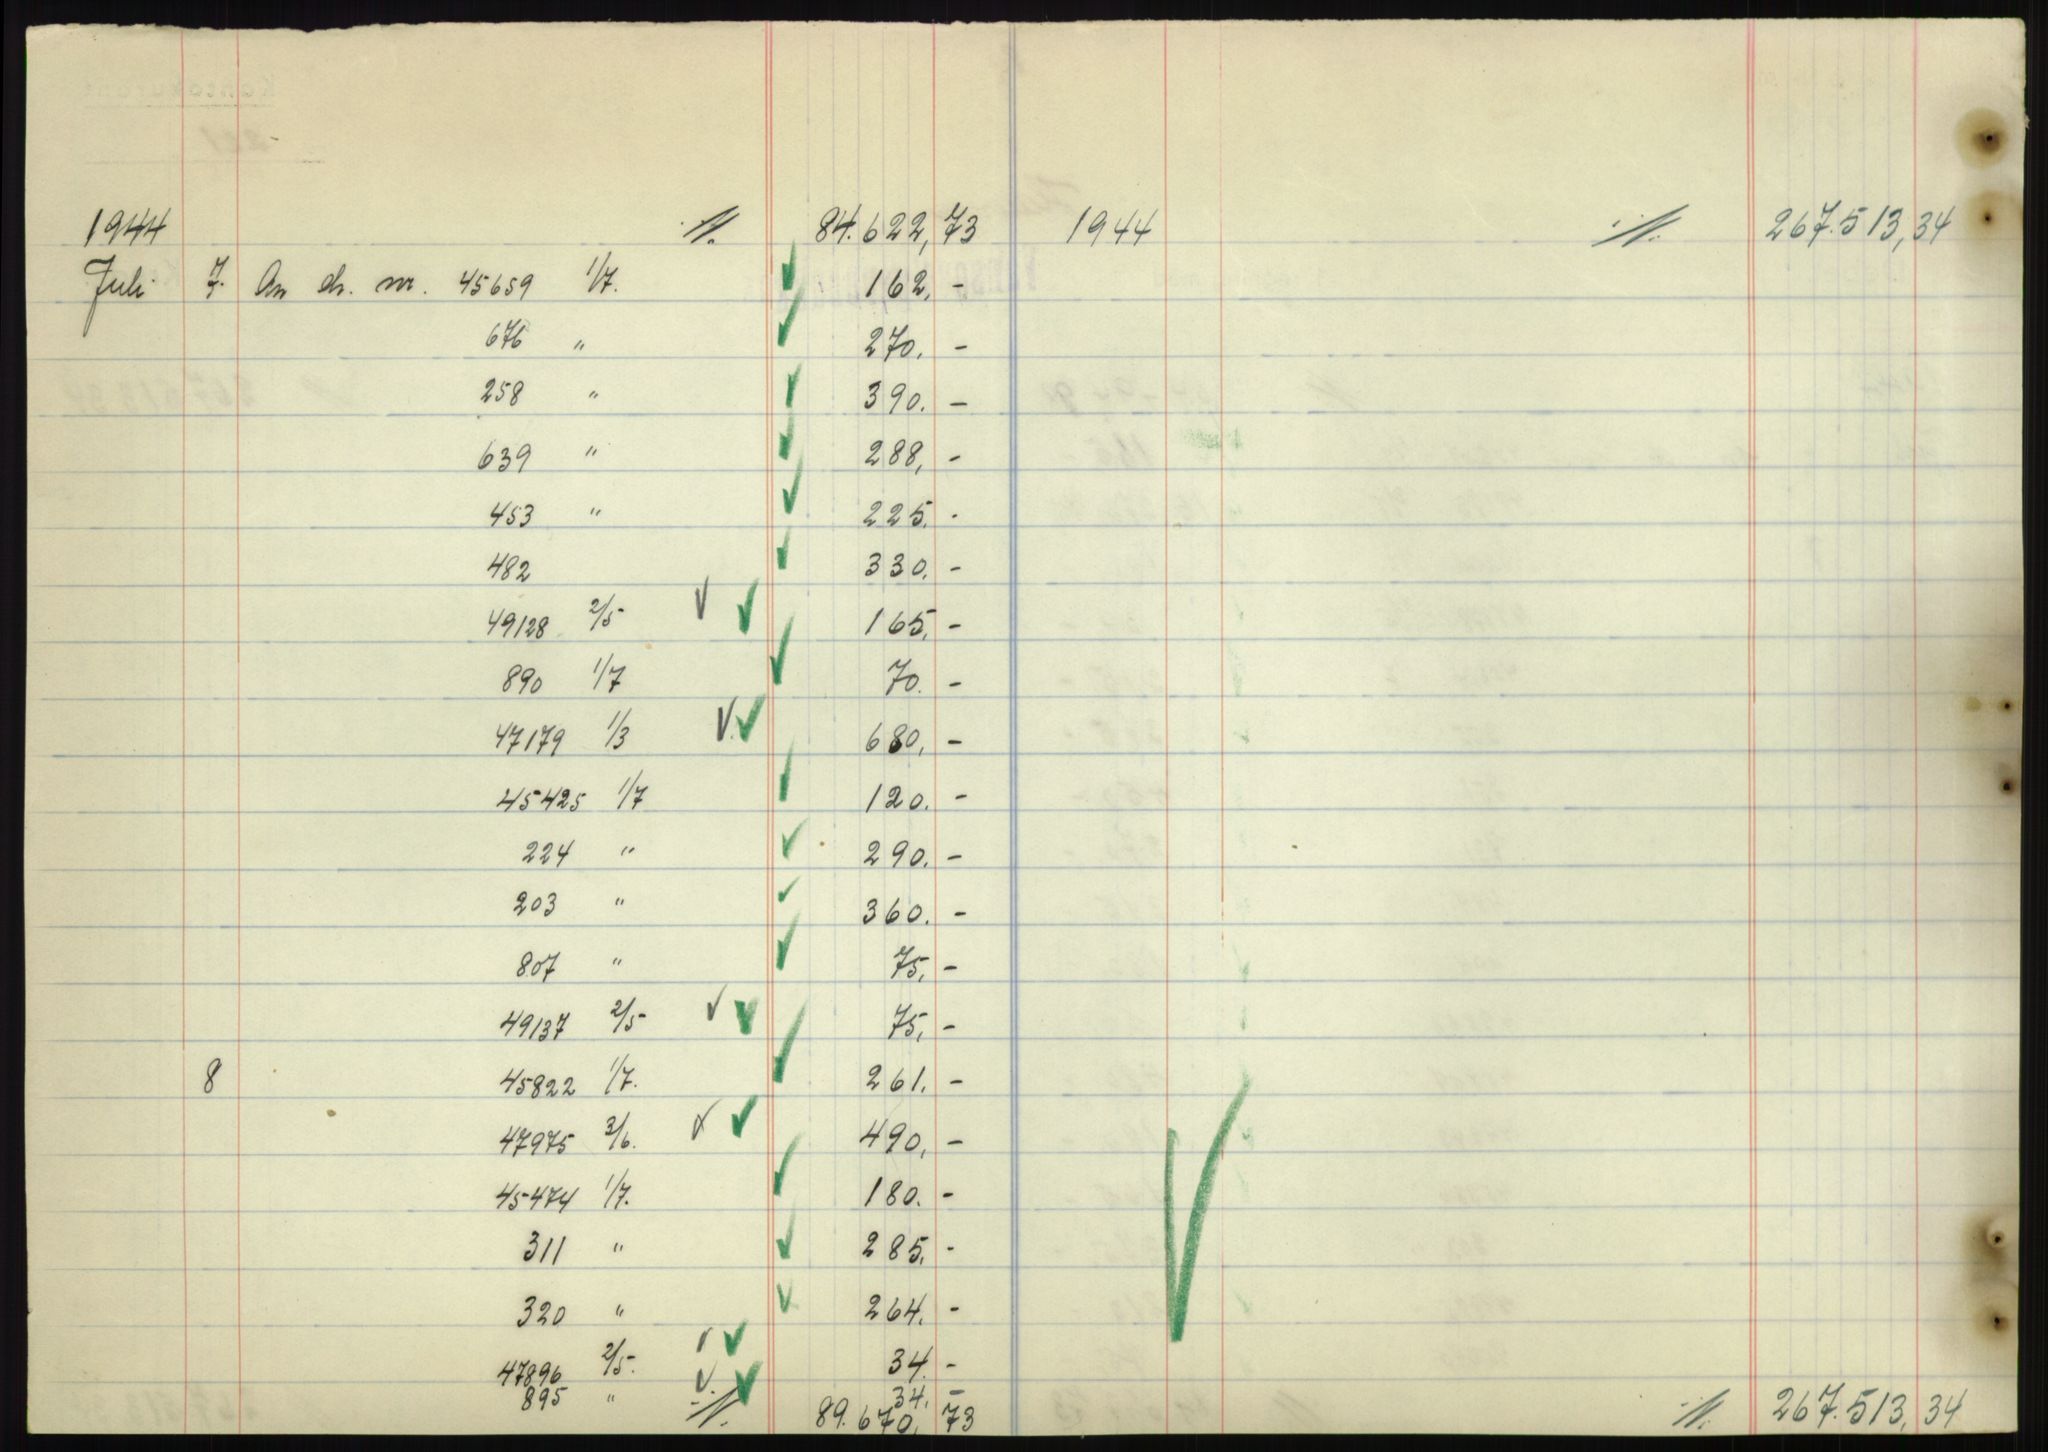 1944 ·/. 84.622,73 1944 ·/. 267.513,34
Juli 7. An ch. nr. 45659 1/7. 162,-
676 " 270.-
258 " 390.-
639 " 288,-
453 " 225.-
482 330.-
49128 2/5 165,-
890 1/7 70.-
47179 1/3 680,-
45425 1/7 120.-
224 " 290.-
203 " 360.-
807 " 75,-
49137 2/5- 75,-
8 45822 1/7. 261.-
47975 3/6. 490,-
45474 1/7. 180.-
311 " 285.-
320 " 264.-
47896 2/5-. 34.-
895 " 34.-
·/. 89.670,73 ·/. 267.513,34